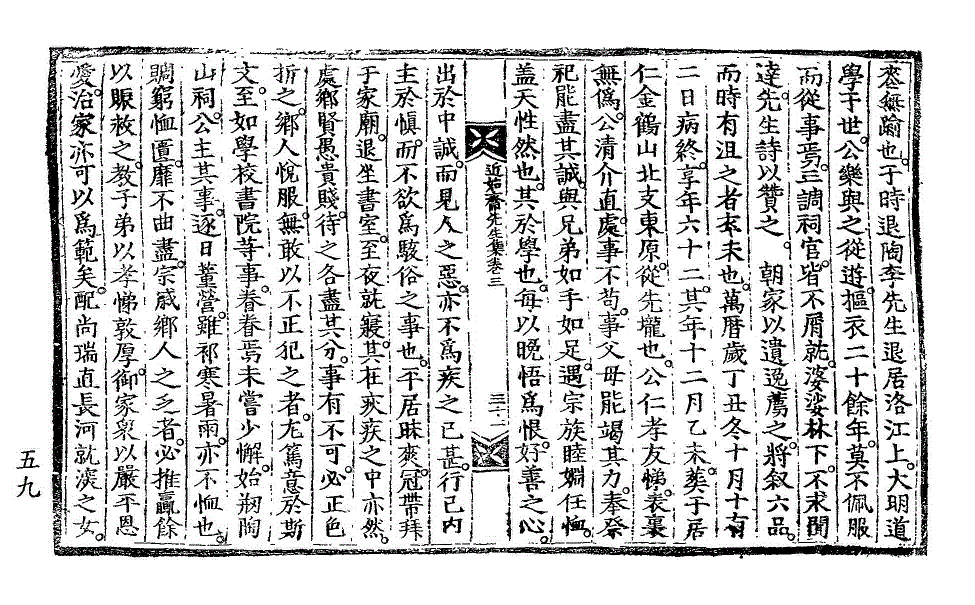 丕無踰也。于時退陶李先生退居洛江上。大明道
學于世。公樂與之從遊。摳衣二十餘年。莫不佩服
而從事焉。三調祠官。皆不屑就。婆娑林下。不求聞
達。先生詩以贊之。 朝家以遺逸薦之。將叙六品。
而時有沮之者。卒未也。萬曆歲丁丑冬十月十有
二日病終。享年六十二。其年十二月乙未。葬于居
仁金鶴山北支東原。從先壠也。公仁孝友悌。表裏
無僞。公淸介直。處事不苟。事父母能竭其力。奉祭
祀能盡其誠。與兄弟如手如足。遇宗族睦婣任恤。
盖天性然也。其於學也。每以晩悟爲恨。好善之心。
近始齋先生集卷三
三十二
出於中誠。而見人之惡。亦不爲疾之已甚。行己內
主於愼。而不欲爲駭俗之事也。平居昧爽。冠帶拜
于家廟。退坐書室。至夜就寢。其在疢疾之中亦然。
處鄕賢愚貴賤。待之各盡其分。事有不可。必正色
折之。鄕人悅服。無敢以不正犯之者。尤篤意於斯
文。至如學校書院等事。眷眷焉未嘗少懈。始刱陶
山祠。公主其事。逐日董營。雖祁寒暑雨。亦不恤也。
賙窮恤匱。靡不曲盡。宗戚鄕人之乏者。必推贏餘
以賑救之。敎子弟以孝悌敦厚。御家衆以嚴平恩
愛。治家亦可以爲範矣。配尙瑞直長河就淡之女。
五九